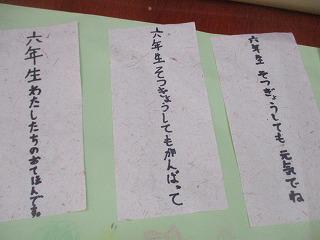 六年生そつぎょうしても元気でね
六年生そつぎょうしてもがんばって
六年生わたしたちのおてほんです。